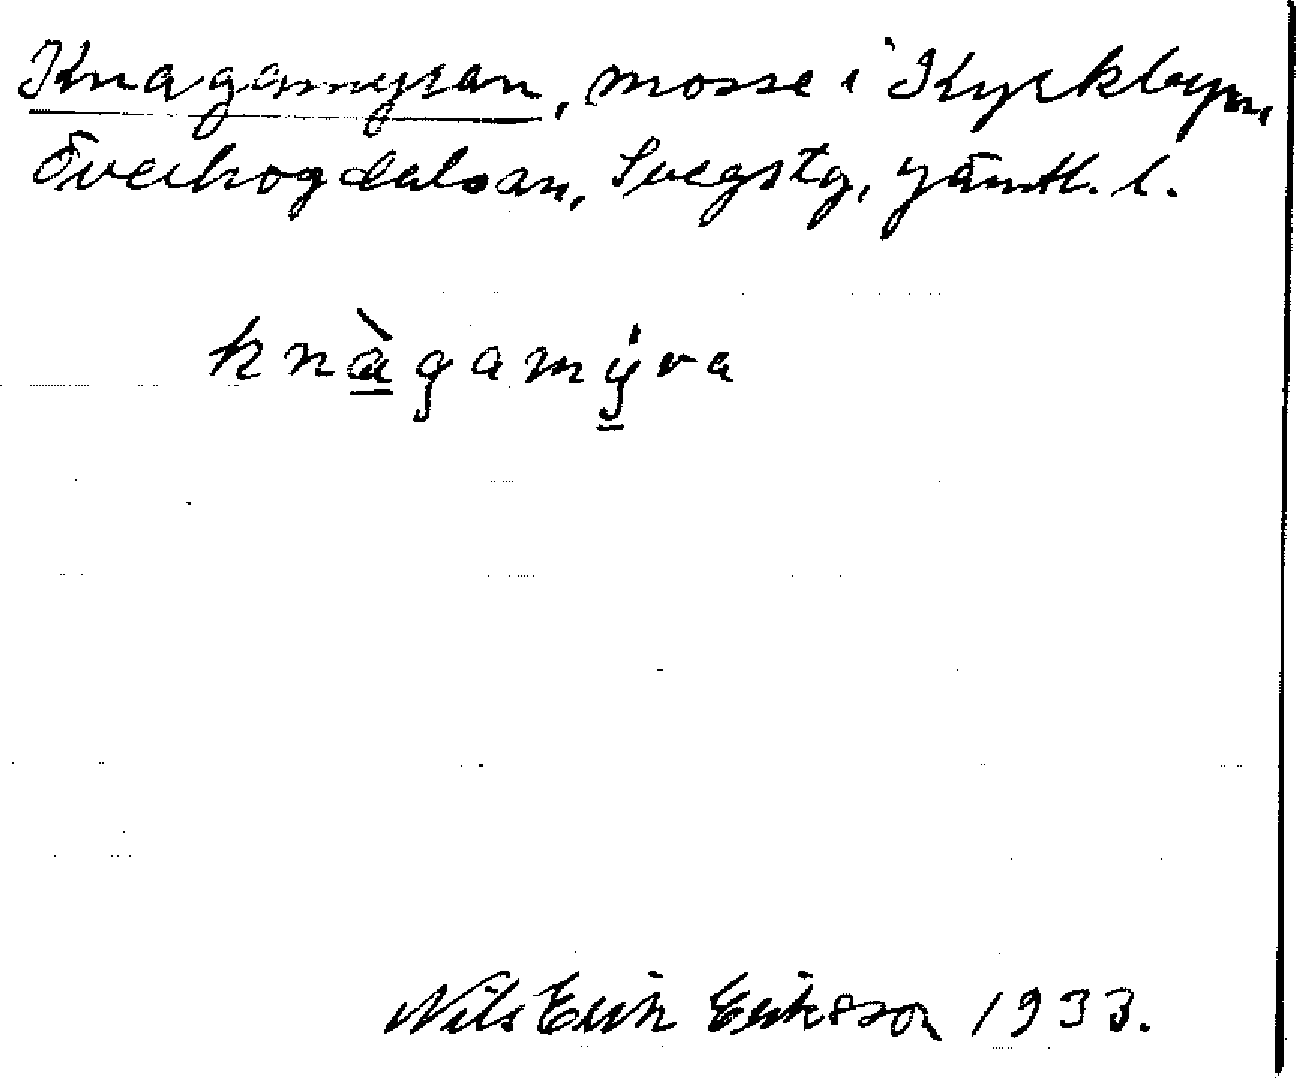 Knagamyran, mosse i Kyrkbyn,
Överhogdals sn, Svegs tg, Jämtl. l.
knàgamýra
Nils Erik Eriksson 1933.